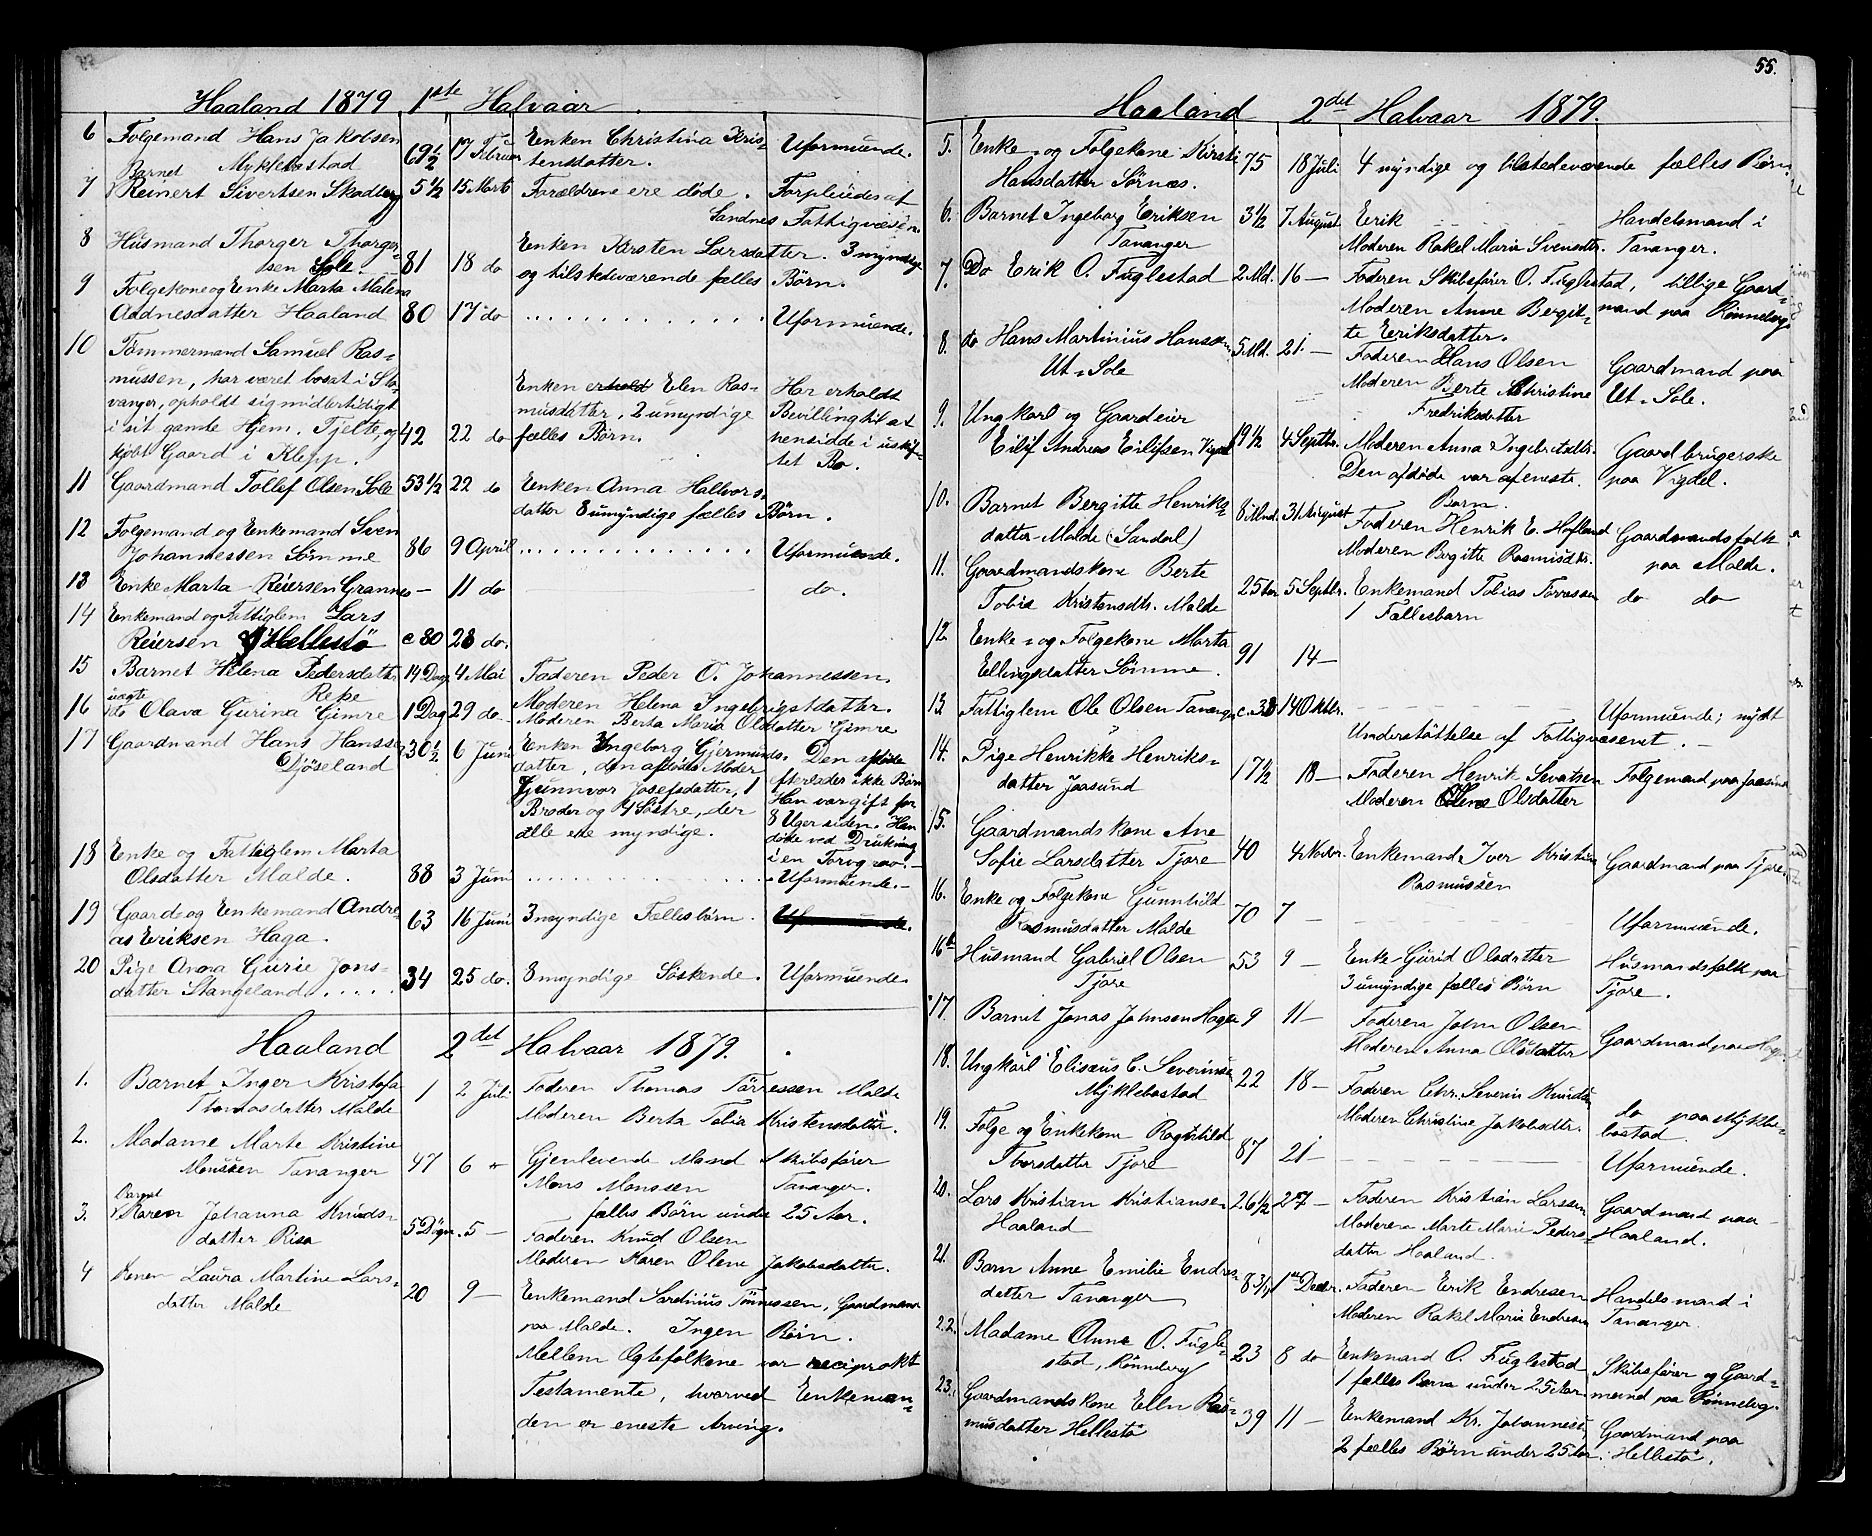 Haaland 1879 1ste Halvaar.
6 Folgemand Hans Jakobsen
Myklebostad 69½ 17 Februar Enken Christina Kris-
tensdatter. Uformuende.
7 Barnet
Reinert Sivertsen Skadberg 5½ 15 Marts Forældrene ere døde. Forpleiedes af
Sandnes Fattigvæsen.
8 Husmand Thorger Thorger-
sen Sole. 81 18 do Enken Kirsten Larsdatter. 3 myndige
og tilstedeværende fælles Børn.
9 Folgekone og Enke Marta Malena
Adnesdatter Haaland 80 17 do . . . . . . . . . . . . Uformuende.
10 Tømmermand Samuel Ras-
mussen, har været bosat i Sta-
vanger, opholdt sig midlertidigt
i sit gamle Hjem, Tjelta, og
kjøbt Gaard i Klepp. 42 22 do
Enken erhold Elen Ras-
musdatter, 2 umyndige
fælles Børn.
Har erholdt
Bevilling til at
hensidde i uskif-
tet Bo.
11 Gaardmand Tollef Olsen Sole 53½ 22 do Enken Anna Hallvors-
datter 8 umyndige fælles Børn.
12 Folgemand og Enkemand Sven
Johannessen Sømme 86 9 April . . . . . . . . . . . . Uformuende.
13 Enke Marta Reiersen Grannes — 11 do — do.
14 Enkemand og Fattiglem Lars
Reiersen Hellestø c 80 28 do.
15 Barnet Helena Pedersdatter
Reke 14 Dage 4 Mai Faderen Peder O. Johannessen.
Moderen Helena Ingebrigtsdatter.
16 uægte
do Olava Gurina Gimre 1 Dag 29 do. Moderen Berta Maria Olsdatter Gimre
17 Gaardmand Hans Hansen
Djøseland 30½ 6 Juni Enken Ingeborg Gjermunds-
datter, den afdødes Moder
Gunnvor Josefsdatter, 1
Broder og 4 Søstre, der
alle ere myndige.
Den afdøde
efterlader ikke Børn
Han var gift for
8 Uger siden. Han
døde ved Drukning
i en Torvgrav.
18 Enke og Fattiglem Marta
Olsdatter Malde. 88 3 Juni . . . . . . . . . . . . Uformuende.
19 Gaard- og Enkemand Andre-
as Eriksen Haga. 63 16 Juni 3 myndige Fællesbørn. Uformuende.
20 Pige Anna Gurie Jons-
datter Stangeland . . . . . 34 25 do. 8 myndige Søskende. Uformuende.
Haaland 2det Halvaar 1879.
1. Barnet Inger Kristofa
Thomasdatter Malde 1 2 Juli Faderen Thomas Tørressen Malde
Moderen Berta Tobia Kristensdatter.
2. Madame Marte Kristine
Monssen Tananger 47 6 " Gjenlevende Mand Skibsfører
Mons Monssen Tananger.
fælles Børn under 25 Aar.
3. Barnet
Karen Johanna Knuds-
datter Risa 5 Døgn. 5 — Faderen Knud Olsen
Moderen Karen Olene Jakobsdatter.
4 Konen Laura Martine Lars-
datter Malde 20 9 — Enkemand Sardinius Tønnessen, Gaardmand
paa Malde. Ingen Børn.
Mellem Ægtefolkene var reciprokt
Testamente, hvorved Enkeman-
den er eneste Arving.
55.
Haaland 2det Halvaar 1879.
5. Enke- og Folgekone Kirsti
Hansdatter Sørnæs. 75 18 Juli 4 myndige og tilstedeværende fælles Børn.
6. Barnet Ingeborg Eriksen
Tananger 3½ 7 August Erik
Moderen Rakel Maria Svensdtr. Handelsmand i
Tananger.
7. Do Erik O. Fuglestad 2 Md. 16 — Faderen Skibsfører O. Fuglestad, tillige Gaard-
Moderen Anne Bergit- mand paa Rønneberg.
te Eriksdatter.
8. do Hans Martinius Hansen
Ut-Sole 5 Md. 21. — Faderen Hans Olsen
Moderen Berte Christine
Fredriksdatter Gaardmand paa
Ut-Sole.
9. Ungkarl og Gaardeier
Eilif Andreas Eilifsen Vigdel 19½ 4 Septbr. Moderen Anna Ingebretsdtr.
Den afdøde var af eneste
Barn. Gaardbrugerske
paa Vigdel.
10. Barnet Bergitte Henriks-
datter Malde (Sandal) 8 Mnd. 31 August Faderen Henrik E. Hofland
Moderen Bergitte Rasmusdtr. Gaardmandsfolk
paa Malde.
11. Gaardmandskone Berte
Tobia Kristensdtr. Malde 25 Aar 5 Septbr. Enkemand Tobias Torressen
1 Fællesbarn do do
12. Enke- og Folgekone Marta
Ellingsdatter Sømme. 91 14 —
13. Fattiglem Ole Olsen Tananger c. 38 14 Oktbr. Uformuende; nydt
Understøttelse af Fattigvæsenet. —
14. Pige Henrikke Henriks-
datter Jaasund 17½ 18 — Faderen Henrik Sevatsen
Moderen Elene Olsdatter Folgemand paa Jaasund
15. Gaardmandskone Ane
Sofie Larsdatter Tjore 40 4 Novbr. Enkemand Iver Kristian
Rasmussen Gaardmand paa Tjore.
16. Enke og Folgekone Gunnhild
Rasmusdatter Malde 70 7 — Uformuende.
16b Husmand Gabriel Olsen
Tjore 53 9 — Enke Gurid Olsdatter
3 umyndige fælles Børn Husmandsfolk paa
Tjore.
17. Barnet Jonas Johnsen Haga 9 11 — Faderen John Olsen
Moderen Anna Olsdatter Gaardmand paa Haga.
18. Ungkarl Elisæus C. Severinsen
Myklebostad 22 18 — Faderen Chr. Severin Knudsen
Moderen Christine Jakobsdtr. do paa Mykle-
bostad.
19. Folge og Enkekone Ragnhild
Thorsdatter Tjore 87 21 — Uformuende.
20. Lars Kristian Kristiansen
Haaland 26½ 27 — Faderen Kristian Larssen
Moderen Marte Marie Peders-
datter Haaland. Gaardmand paa
Haaland.
21. Barn Anne Emilie Endres-
datter Tananger 8 3/4 1ste Decbr. Faderen Erik Endresen
Moderen Rakel Maria Endresen Handelsmand i
Tananger.
22. Madame Anne O. Fugle-
stad, Rønneberg 23 8 do Enkemand O. Fuglestad
1 fælles Barn under 25 Aar. Skibsfører og Gaard-
mand paa Rønneberg.
23. Gaardmandskone Ellen Ras-
musdatter Hellestø 39 11 — Enkemand Kr. Johannesen,
2 fælles Børn under 25 Aar. Gaardmand paa
Hellestø.